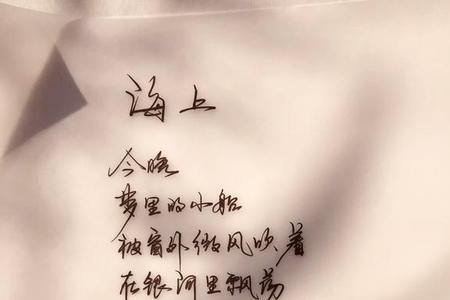 海上
今晚
梦里的小船
被窗外微风吹着
在银河里飘荡